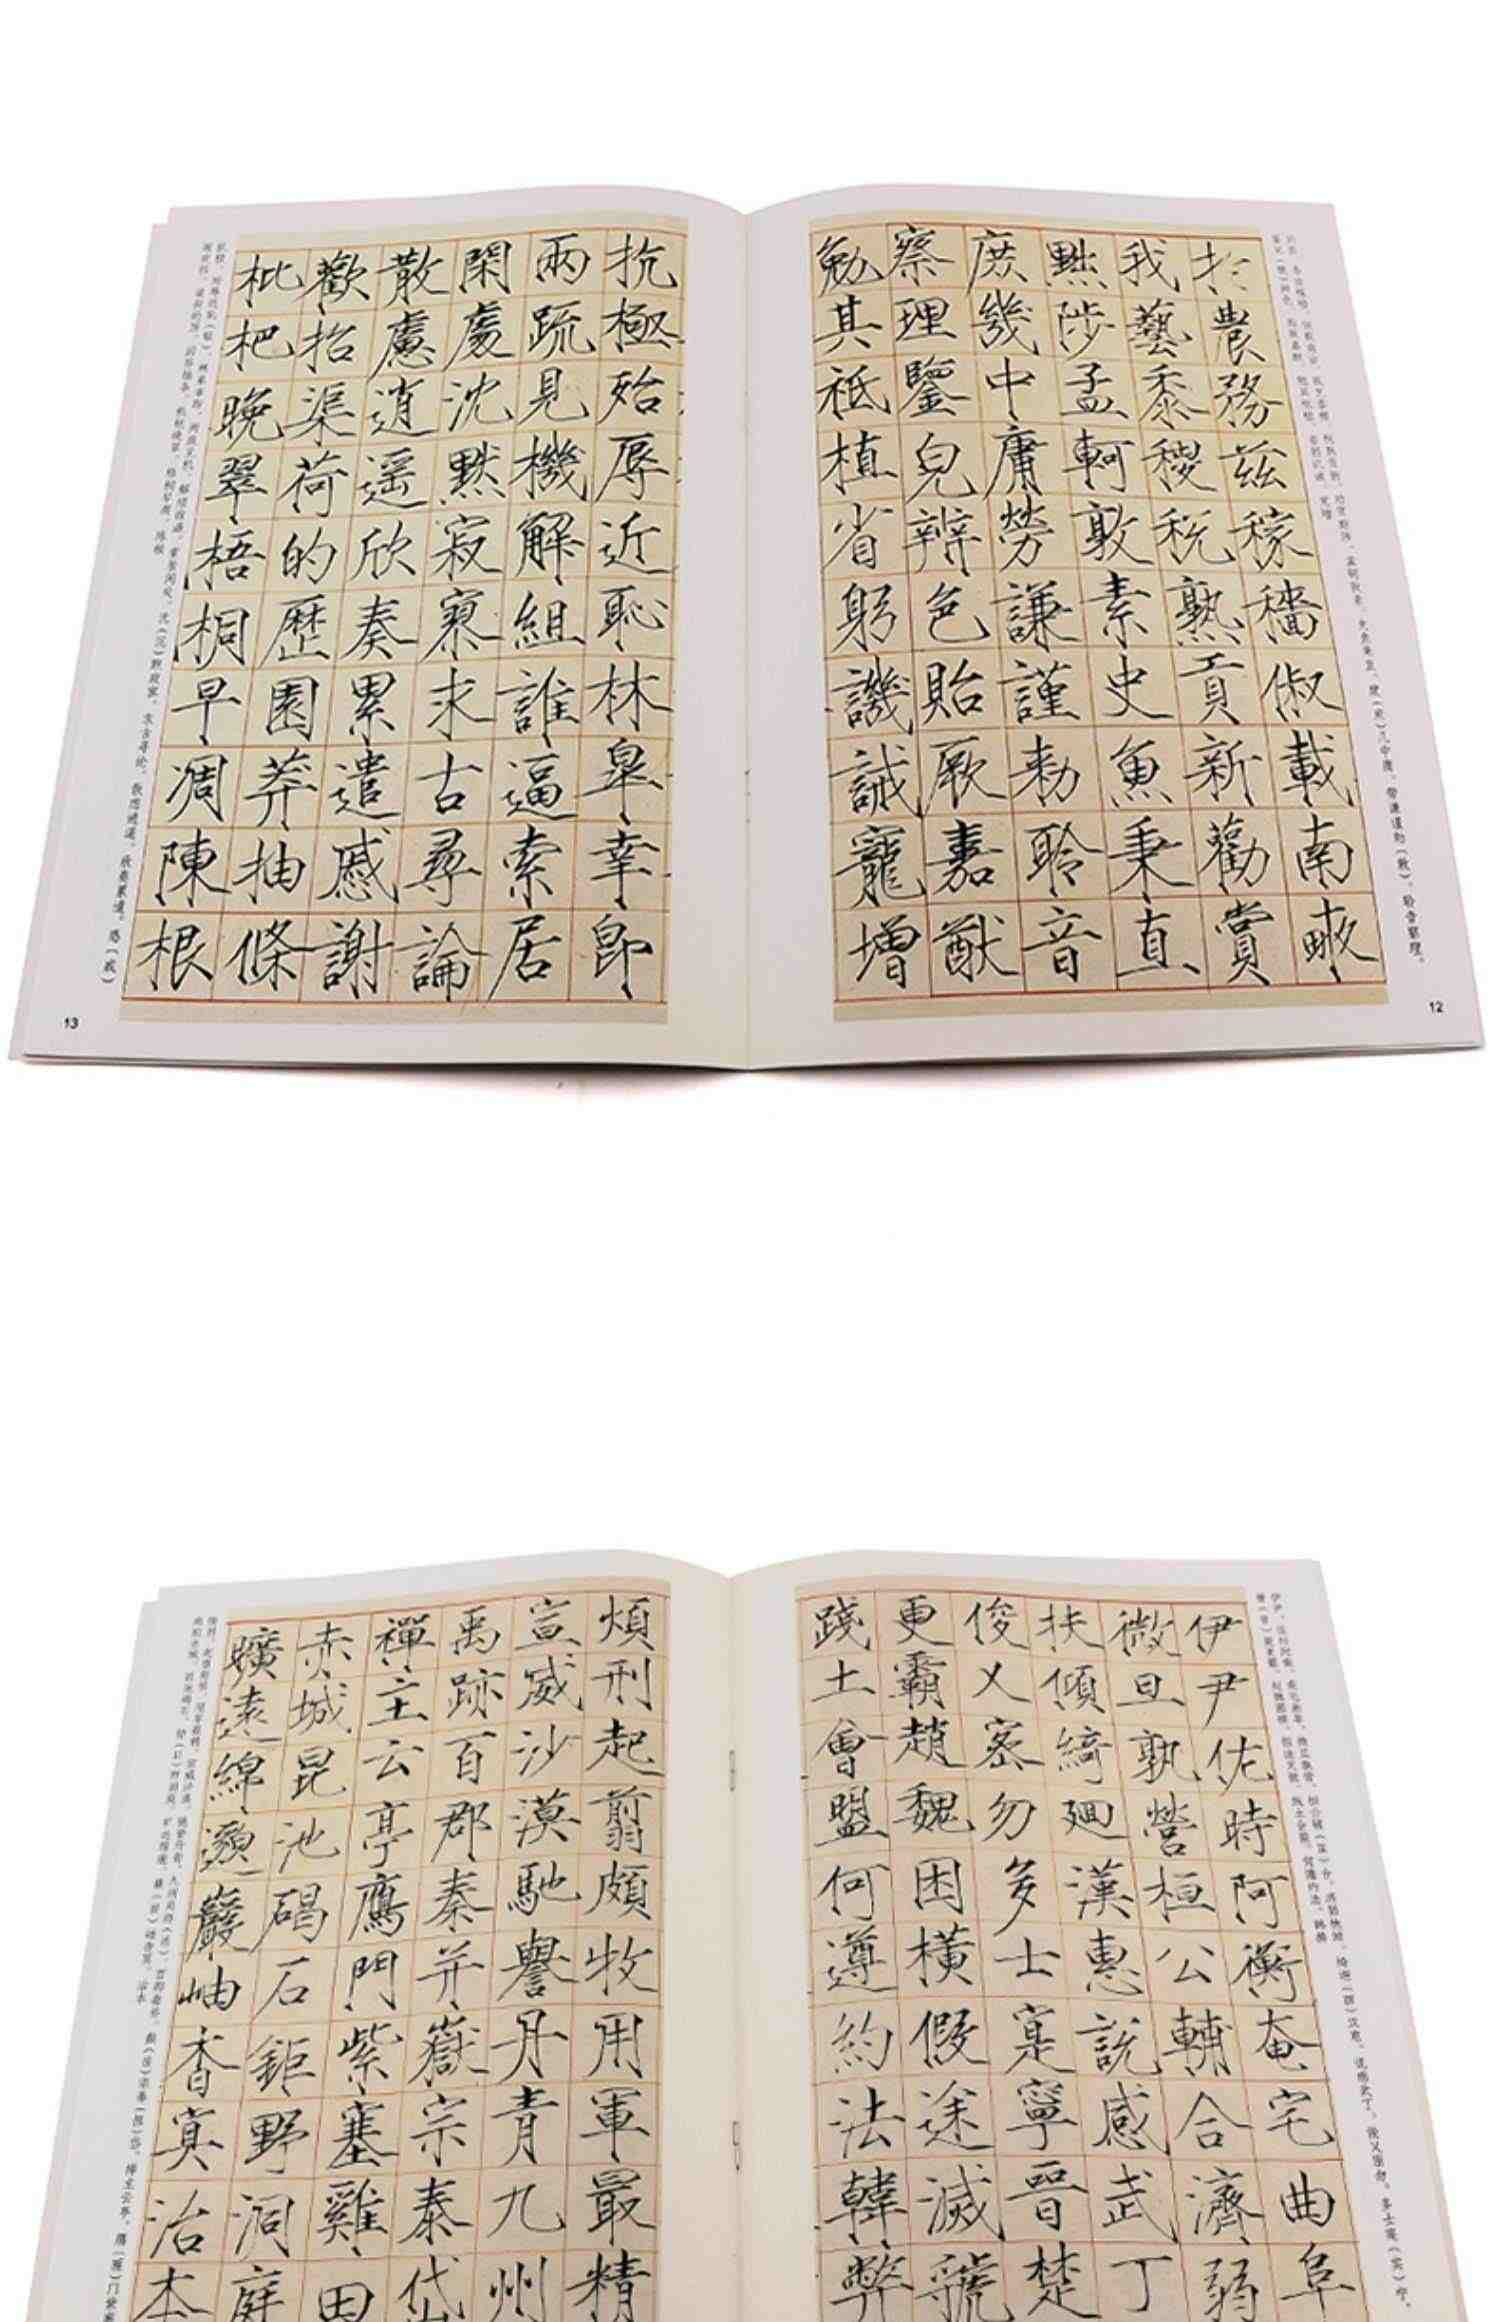 於農務茲稼穡俶載南畝
我藝黍稷税熟貢新勸賞
黜陟孟軻敦素史魚秉直
庶幾中庸勞謙謹勑聆音
察理鑒皃辨色貽厥嘉猷
勉其祗植省躬譏誡寵增
12
抗極殆辱近恥林皋幸即
兩疏見機解組誰逼索居
閑處沈默寂寥求古尋論
散慮逍遥欣奏累遣慼謝
歡招渠荷的歷園莽抽條
枇杷晚翠梧桐早凋陳根
13
伊尹佐時阿衡奄宅曲阜
微旦孰營桓公輔合濟弱
扶傾綺廻漢惠說感武丁
俊乂密勿多士寔寧晉楚
更霸趙魏困橫假途滅虢
踐土會盟何遵約法韓弊
煩刑起翦頗牧用軍最精
宣威沙漠馳譽丹青九州
禹跡百郡秦并嶽宗泰岱
禪主云亭鴈門紫塞雞田
赤城昆池碣石鉅野洞庭
曠遠綿邈巖岫杳冥治本